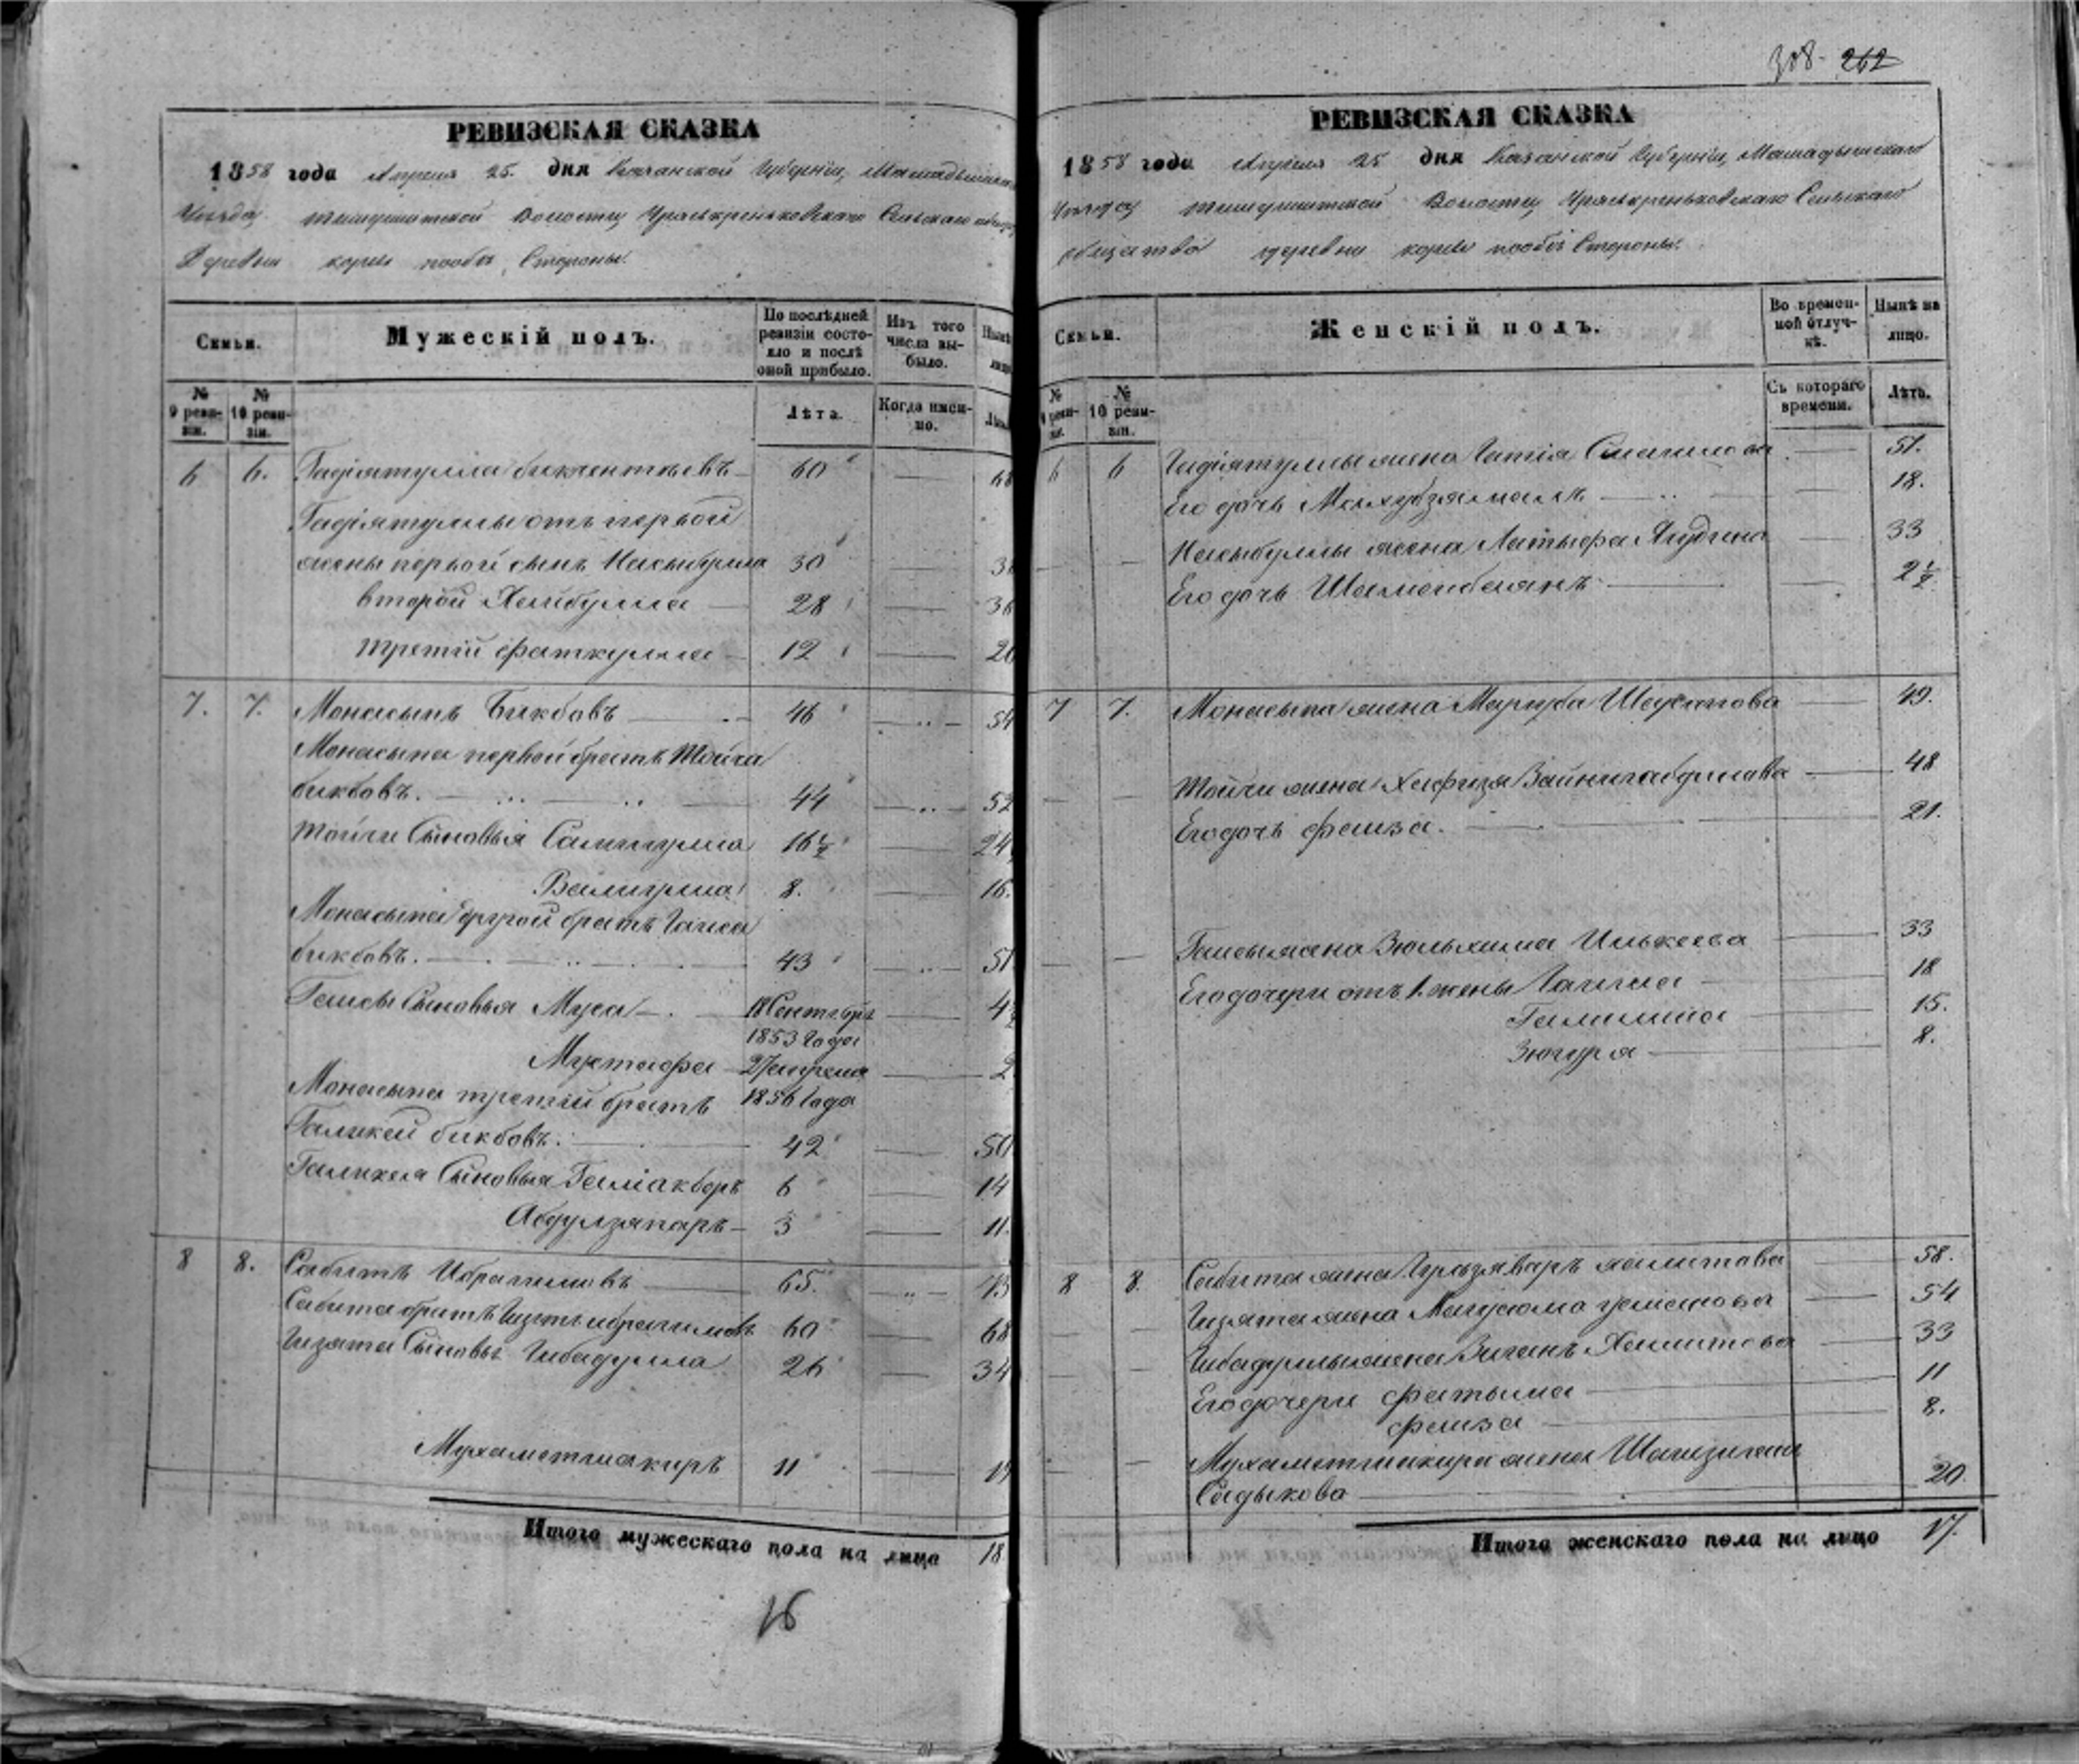 308. 262
РЕВИЗСКАЯ СКАЗКА
1858 года Апреля 25. дня Казанской Губерніи, Мамадышскаго
Уезда, Волости, Сельскаго
Деревни корсы пообѣ Стороны.
Семьи.
Мужескій полъ.
По послѣдней ревизіи состояло и послѣ оной прибыло.
Изъ того числа выбыло.
Нынѣ лицо
№ 9 ревизіи.
№ 10 ревизіи.
Лѣта.
Когда именно.
Лѣта
6 6. Гадіятулла бикментьевъ 60 68
Гадіятуллы отъ первой
жены первой сынъ Насыбулла 30 38
второй Хейбулла 28 36
третій фаткулла 12 20
7. 7. Монасыпъ Бикбовъ 46 54
Монасыпа первой братъ Тойча
бикбовъ. 44 52
Тойчи Сыновья Салигулла 16½ 24
Валигулла 8. 16.
Монасыпа другой братъ Гаиса
бикбовъ. 43 51
Гаисы Сыновья Муса 18 Сентября 4½
1853 Года
Мустафа 27 апреля 2
Монасыпа третій братъ 1856 Года
Галикей бикбовъ. 42 50
Галикея Сыновья Галіакберъ 6 14
Абдулзяпаръ 3 11.
8 8. Сабитъ Ибрагимовъ 65. 73
Сабита братъ Гизятъ ибрагимовъ 60 68
Гизята Сыновья Гибадулла 26 34
Мухаметшакиръ 11 19
Итого мужескаго пола на лицо 18
16
РЕВИЗСКАЯ СКАЗКА
1858 года Апреля 25 дня Казанской Губерніи, Мамадышскаго
Уезда Волости, Сельскаго
общества деревни корсы пообѣ Стороны.
Семьи.
Женскій полъ.
Во временной отлучкѣ.
Нынѣ на лицо.
№ 9 ревизіи.
№ 10 ревизіи.
Съ котораго времени.
Лѣта.
6 6 Гадіятуллы жена Гатія Смагилова 51.
Его дочь Махубзямалъ 18.
Насыбуллы жена Латыфа Ягудина 33
Его дочь Шамсибаянъ 2½
7 7. Монасыпа жена Марифа 49.
Тойчи жена Хафизя Зайнигабдулова 48
Его дочь фаиза. 21.
Гаисы жена Зюльхима Илькеева 33
Его дочери отъ 1. жены 18
Галимша 15.
Зюгура 8.
8 8. Сабита жена Гульзяваръ халитова 58.
Гизята жена 54
Гибадуллы жена Хамитова 33
Его дочери фатыма 11
фаиза 8.
Мухаметшакира жена
Садыкова 20.
Итого женскаго пола на лицо 17.